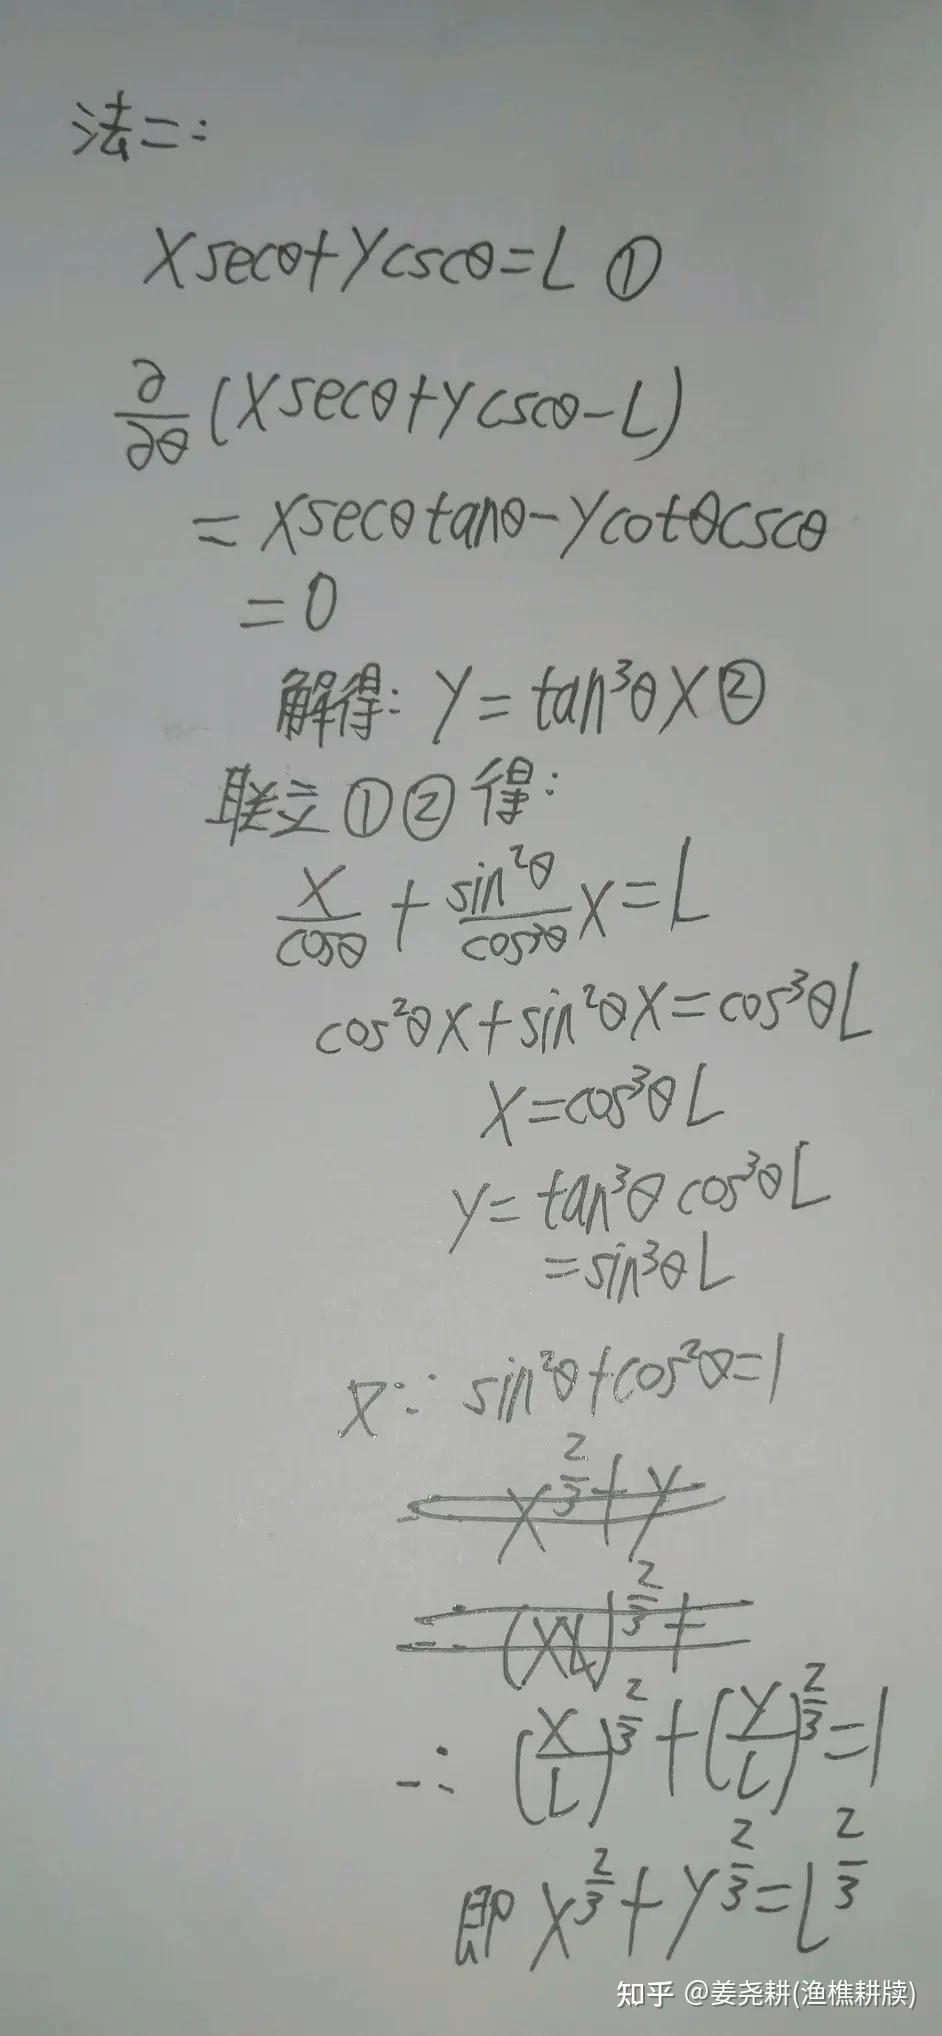 法二:
Xsecθ+Ycscθ=L ①
∂/∂θ (Xsecθ+Ycscθ-L)
=Xsecθtanθ-Ycotθcscθ
=0
解得: Y=tan³θX②
联立①②得:
X/cosθ + sin²θ/cos³θ X=L
cos²θX+sin²θX=cos³θL
X=cos³θL
Y=tan³θcos³θL
=sin³θL
又∵ sin²θ+cos²θ=1
∴ (X/L)^(2/3)+(Y/L)^(2/3)=1
即 X^(2/3)+Y^(2/3)=L^(2/3)
知乎 @姜尧耕(渔樵耕牍)